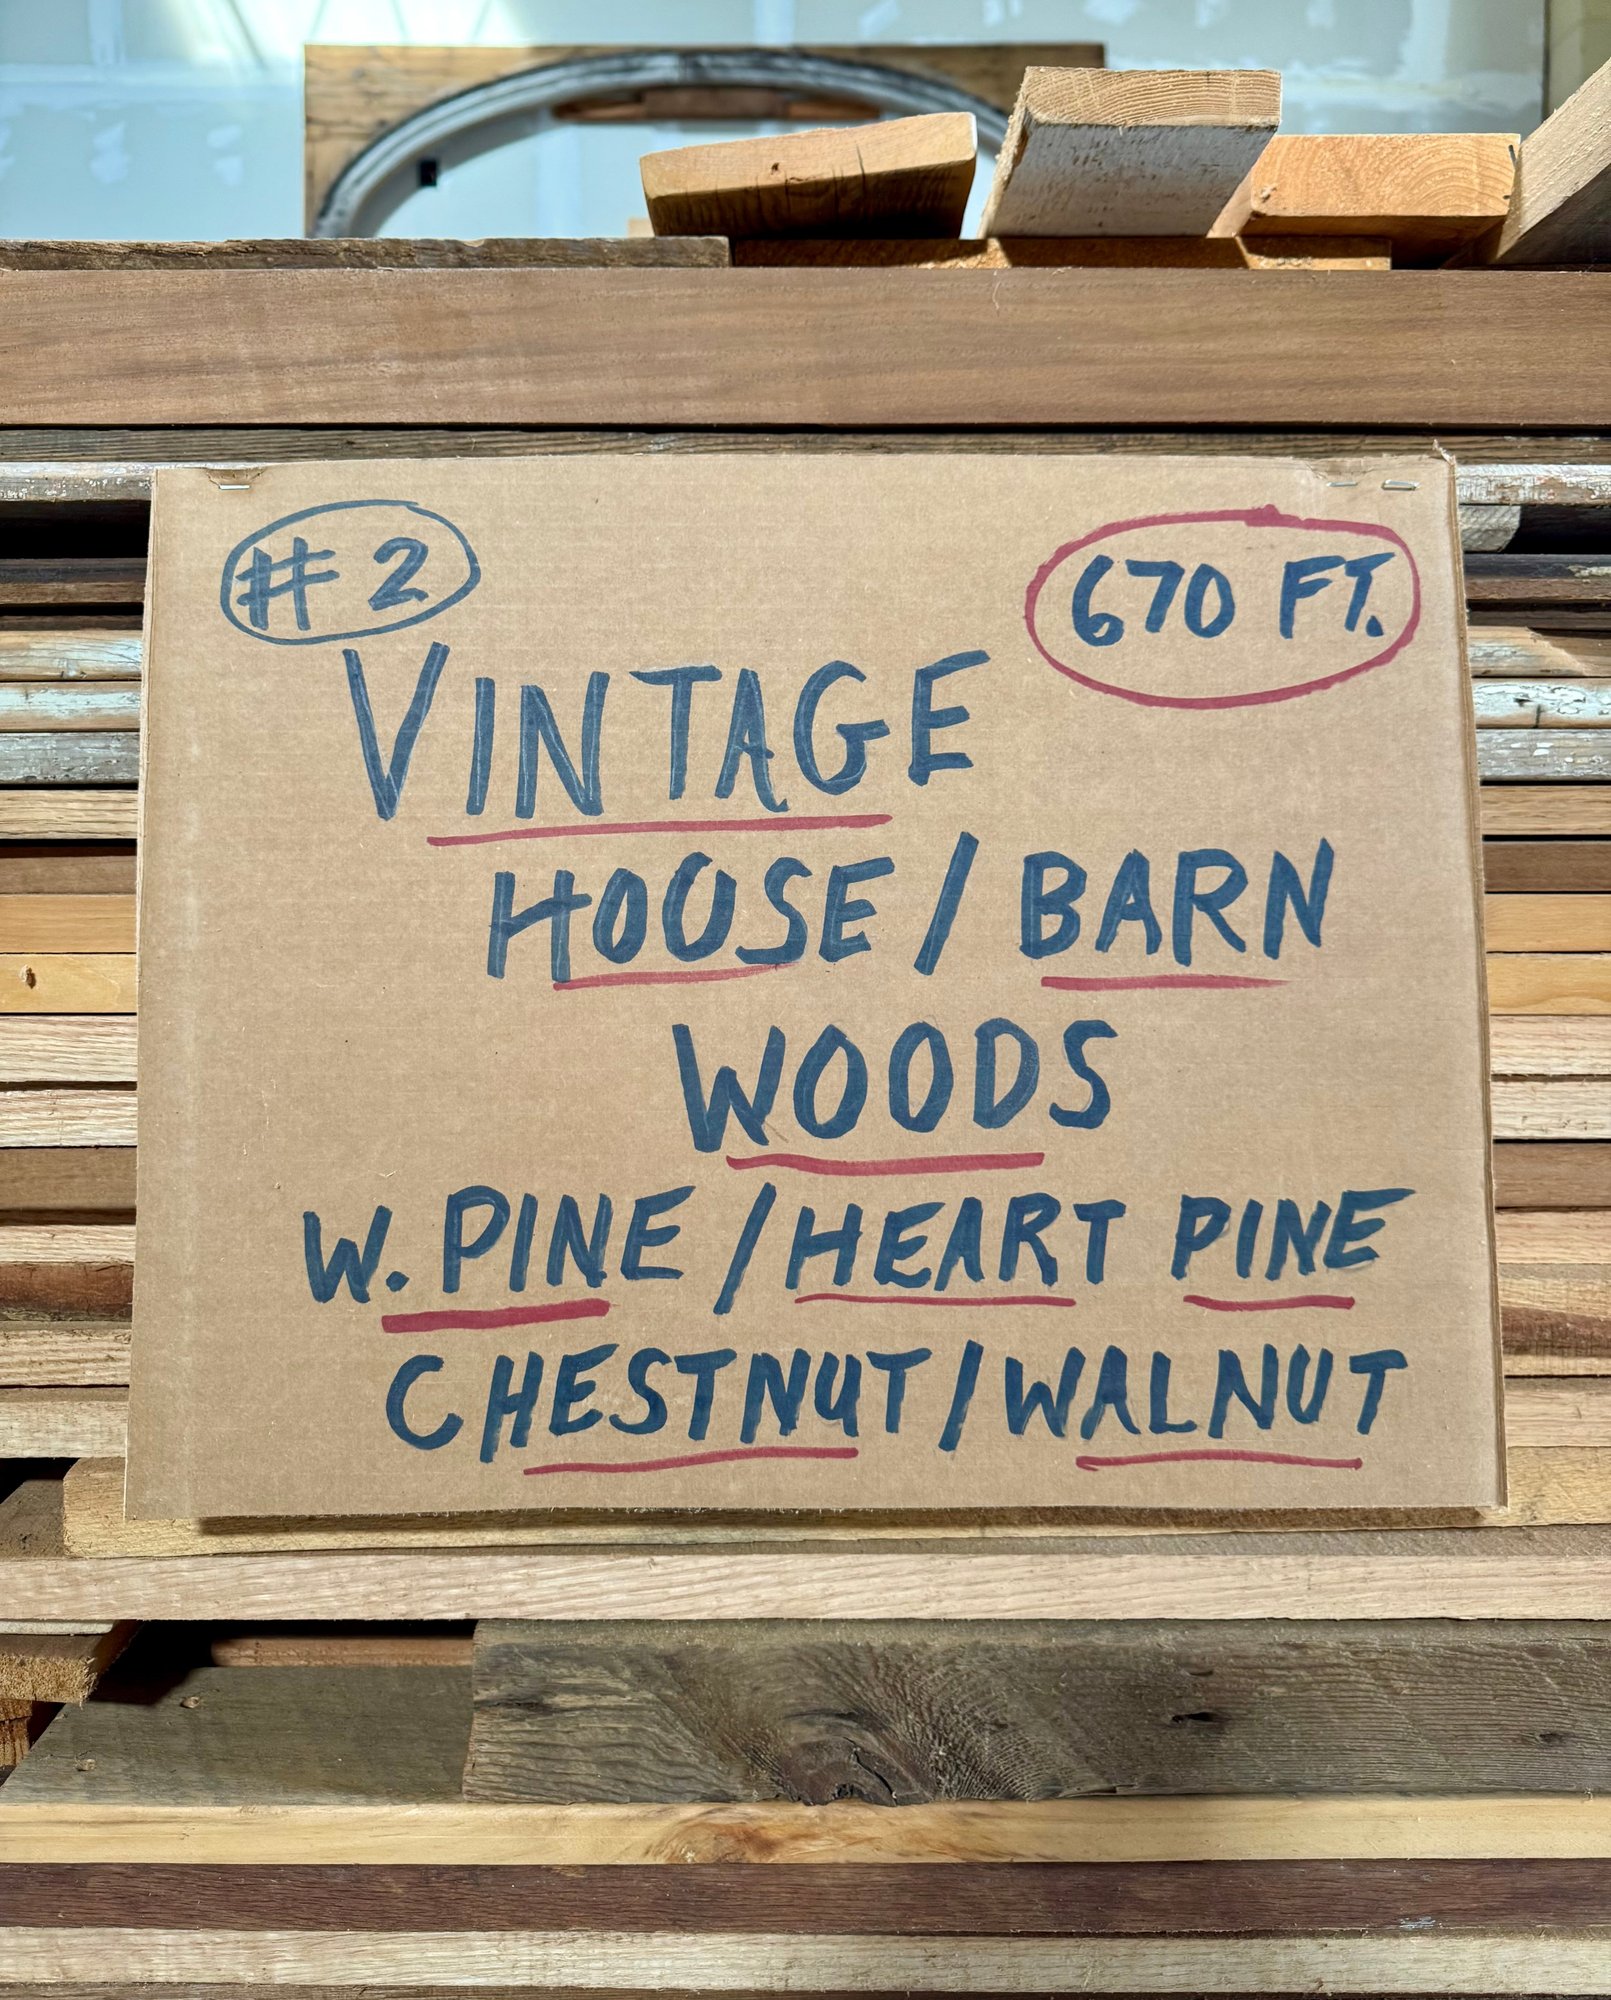 # 2
670 FT.
VINTAGE
HOUSE / BARN
WOODS
W. PINE / HEART PINE
CHESTNUT / WALNUT